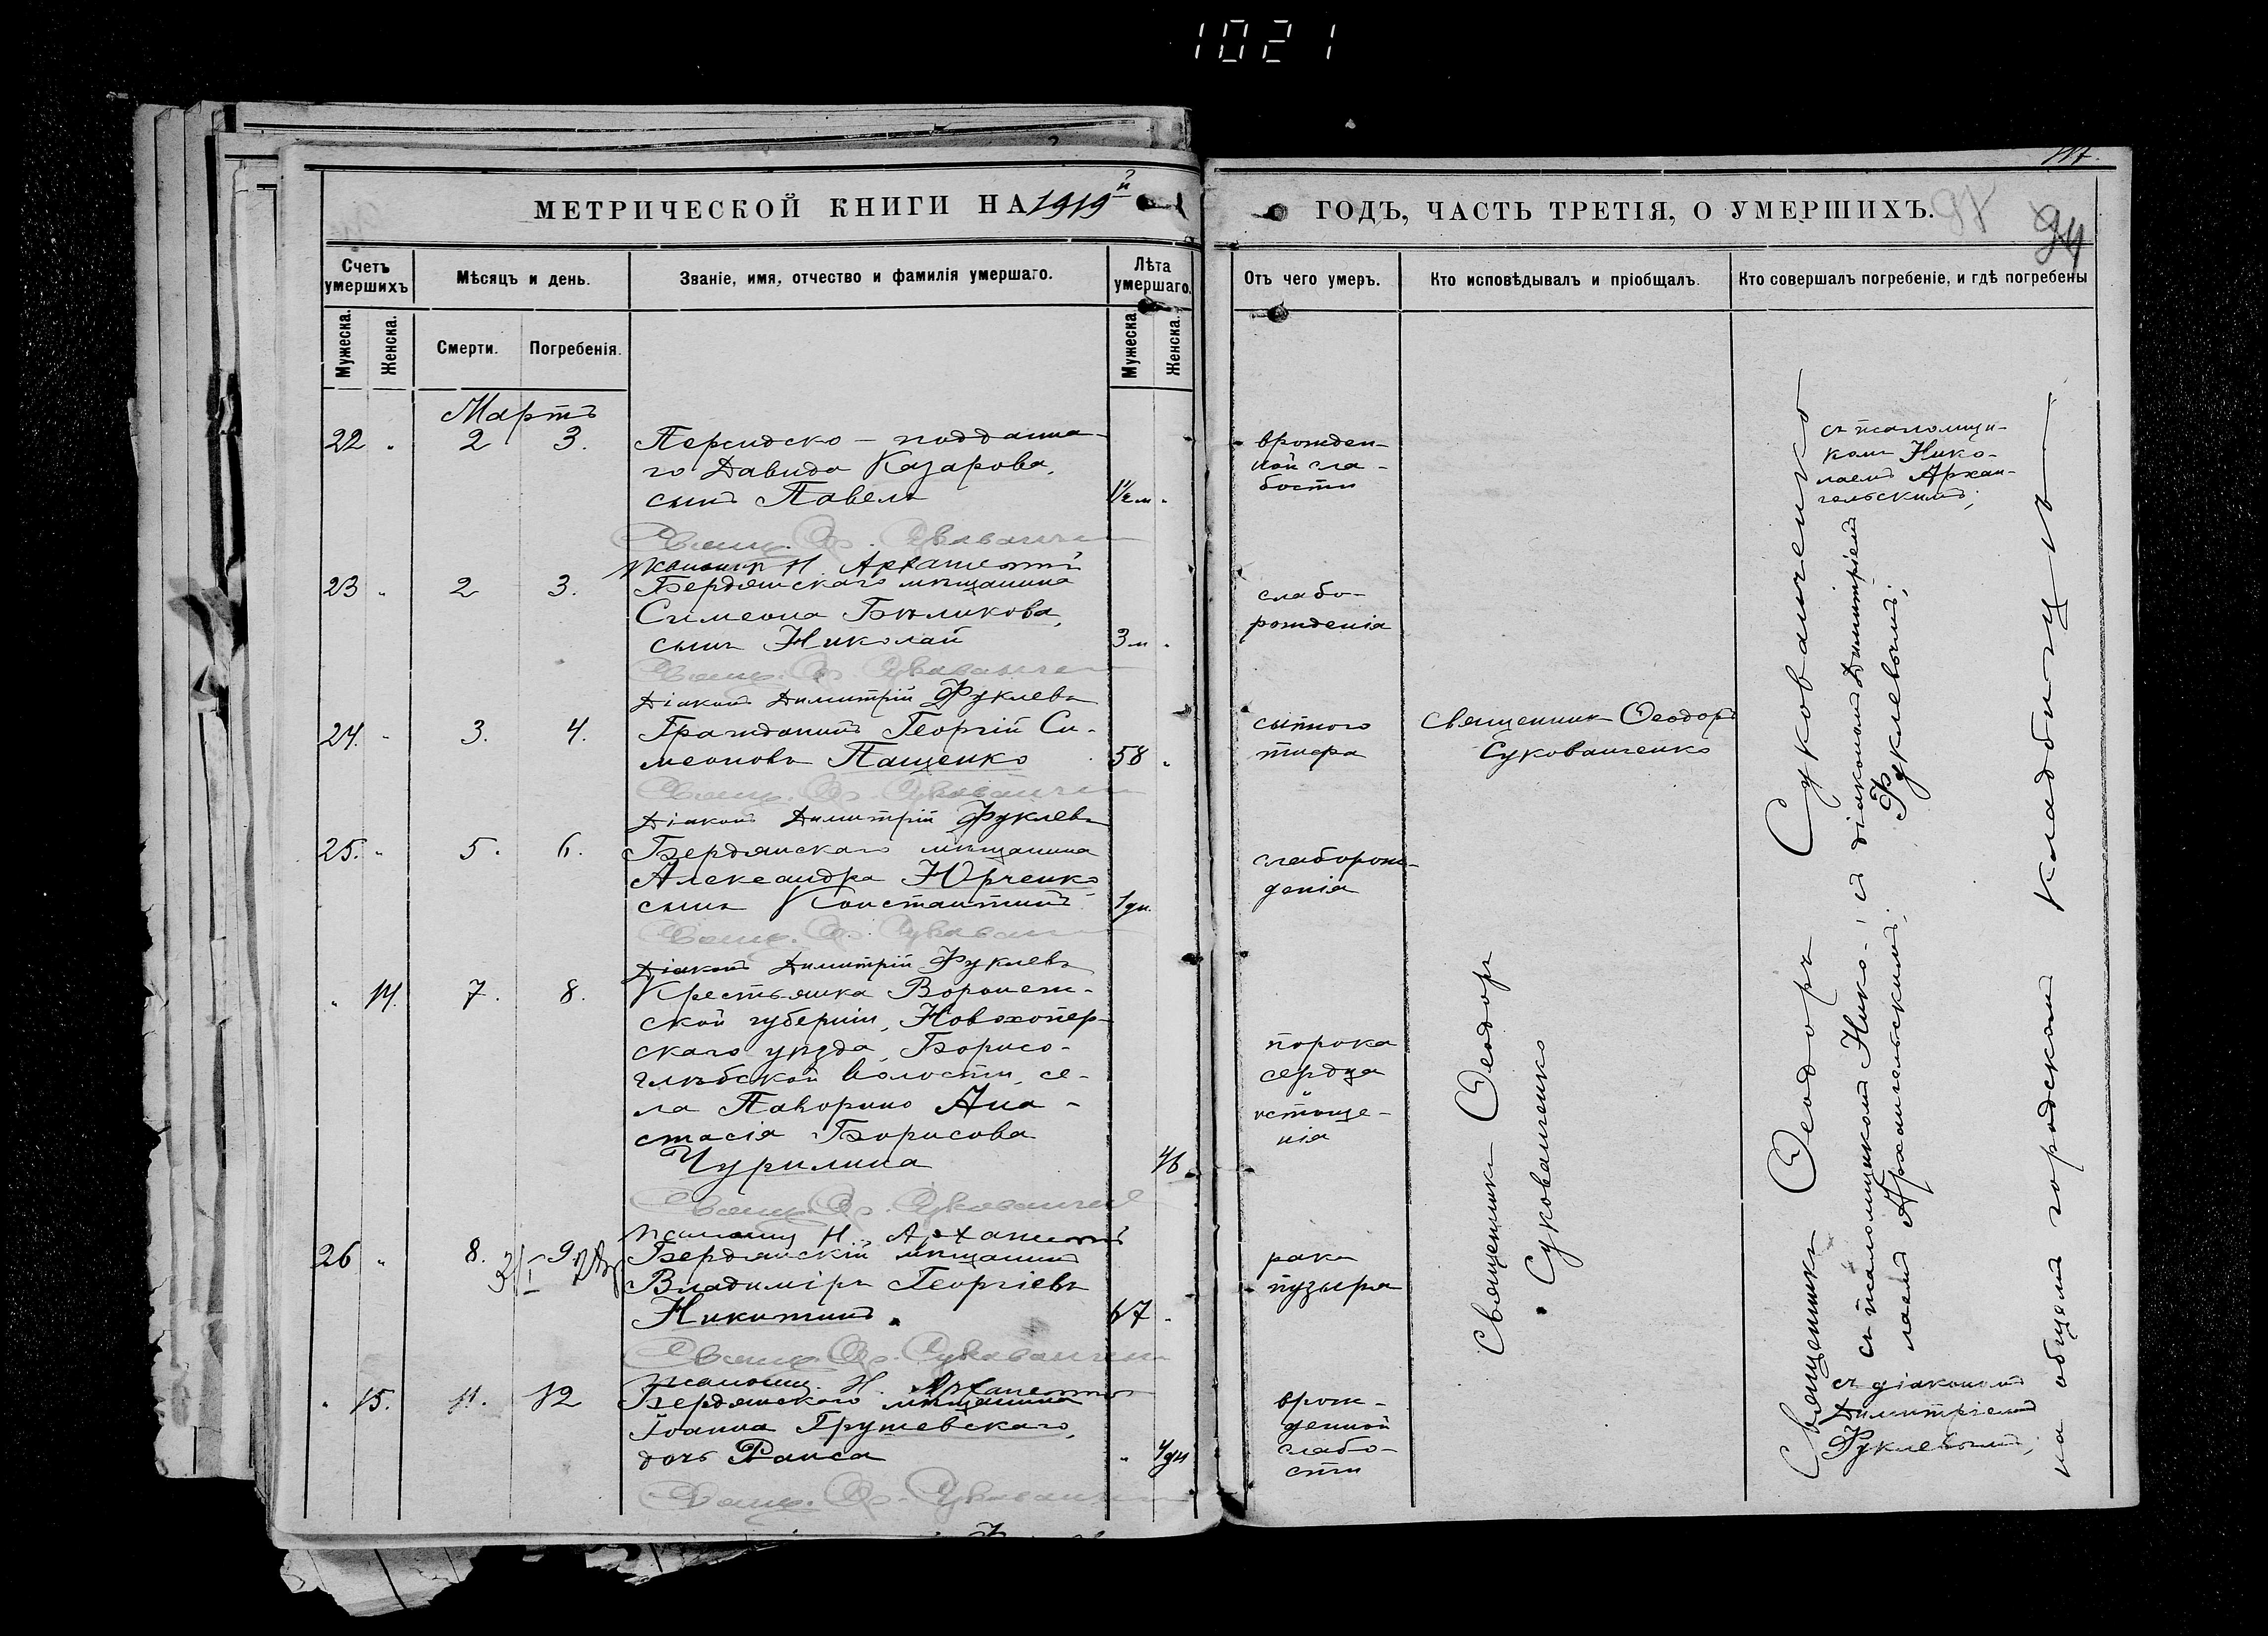 1021
117.
МЕТРИЧЕСКОЙ КНИГИ НА 1919й
ГОДЪ, ЧАСТЬ ТРЕТІЯ, О УМЕРШИХЪ.
94
Счетъ умершихъ
Мѣсяцъ и день.
Званіе, имя, отчество и фамилія умершаго.
Лѣта умершаго.
Отъ чего умеръ.
Кто исповѣдывалъ и пріобщалъ.
Кто совершалъ погребеніе, и гдѣ погребены
Мужеска.
Женска.
Смерти.
Погребенія.
Мужеска.
Женска.
Мартъ
22 " 2 3. Персидско-поддана-
го Давида Казарова,
сынъ Павелъ 1½ м "
врожден-
ной сла-
бости
Свящ. Ѳ. Сукованченко
Псаломщ. Н. Архангельскій
23 " 2 3. Бердянскаго мѣщанина
Симеона Бѣликова,
сынъ Николай 3 м "
слабо-
рожденія
Свящ. Ѳ. Сукованченко
Діаконъ Димитрій Фуклевъ
24. " 3. 4. Гражданинъ Георгій Си-
меоновъ Пащенко 58 "
сыпного
тифа
Священникъ Ѳеодоръ
Сукованченко
Свящ. Ѳ. Сукованченко
Діаконъ Димитрій Фуклевъ
25. " 5. 6. Бердянскаго мѣщанина
Александра Юрченко
сынъ Константинъ 1 дн.
слаборож-
денія
Свящ. Ѳ. Сукованченко
Діаконъ Димитрій Фуклевъ
" 14. 7. 8. Крестьянка Воронеж-
ской губерніи, Новохопер-
скаго уѣзда, Борисо-
глѣбской волости, се-
ла Пакорино Ана-
стасія Борисова
Чурилина 46
порока
сердца
и
истоще-
нія
Свящ. Ѳ. Сукованченко
Псаломщ. Н. Архангельскій
26 " 8. 9 Бердянскій мѣщанинъ
Владиміръ Георгіевъ
Никитинъ. 67 "
рака
пузыря
Свящ. Ѳ. Сукованченко
Псаломщ. Н. Архангельскій
" 15. 11. 12 Бердянскаго мѣщанина
Іоанна Грушевскаго,
дочь Раиса " 4 дн
врож-
денной
слабо-
сти
Свящ. Ѳ. Сукованченко
Священникъ Ѳеодоръ
Сукованченко
Священникъ Ѳеодоръ Сукованченко
съ псаломщи-
комъ Нико-
лаемъ Архан-
гельскимъ;
съ діакономъ Димитріемъ
Фуклевымъ;
съ псаломщикомъ Нико-
лаемъ Архангельскимъ;
съ діакономъ
Димитріемъ
Фуклевымъ;
на общемъ городскомъ кладбищѣ